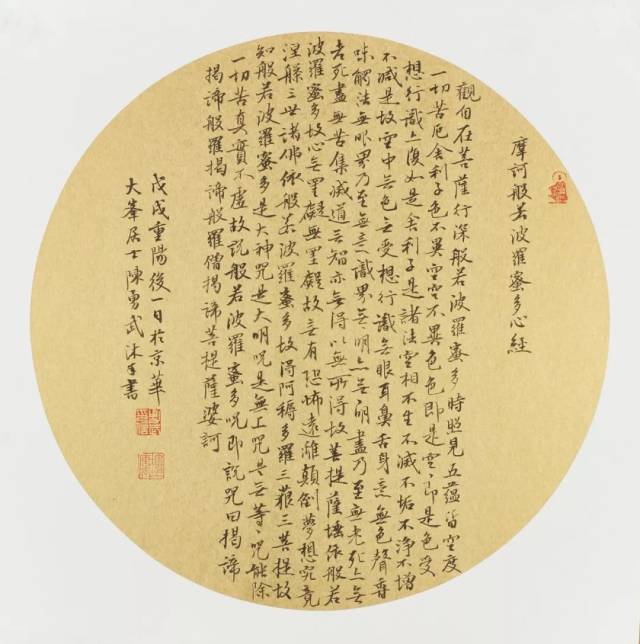 摩訶般若波羅蜜多心經
觀自在菩薩行深般若波羅蜜多時照見五蘊皆空度
一切苦厄舍利子色不異空空不異色色即是空々即是色受
想行識亦復如是舍利子是諸法空相不生不滅不垢不淨不增
不減是故空中無色無受想行識無眼耳鼻舌身意無色聲香
味觸法無眼界乃至無意識界無々明亦無明盡乃至無老死亦無
老死盡無苦集滅道無智亦無得以無所得故菩提薩埵依般若
波羅蜜多故心無罣礙無罣礙故無有恐怖遠離顛倒夢想究竟
涅槃三世諸佛依般若波羅蜜多故得阿耨多羅三藐三菩提故
知般若波羅蜜多是大神咒是大明咒是無上咒是無等々咒能除
一切苦真實不虛故說般若波羅蜜多咒即說咒曰揭諦
揭諦般羅揭諦般羅僧揭諦菩提薩婆訶
戊戌重陽後一日於京華
大峯居士陳勇武沐手書